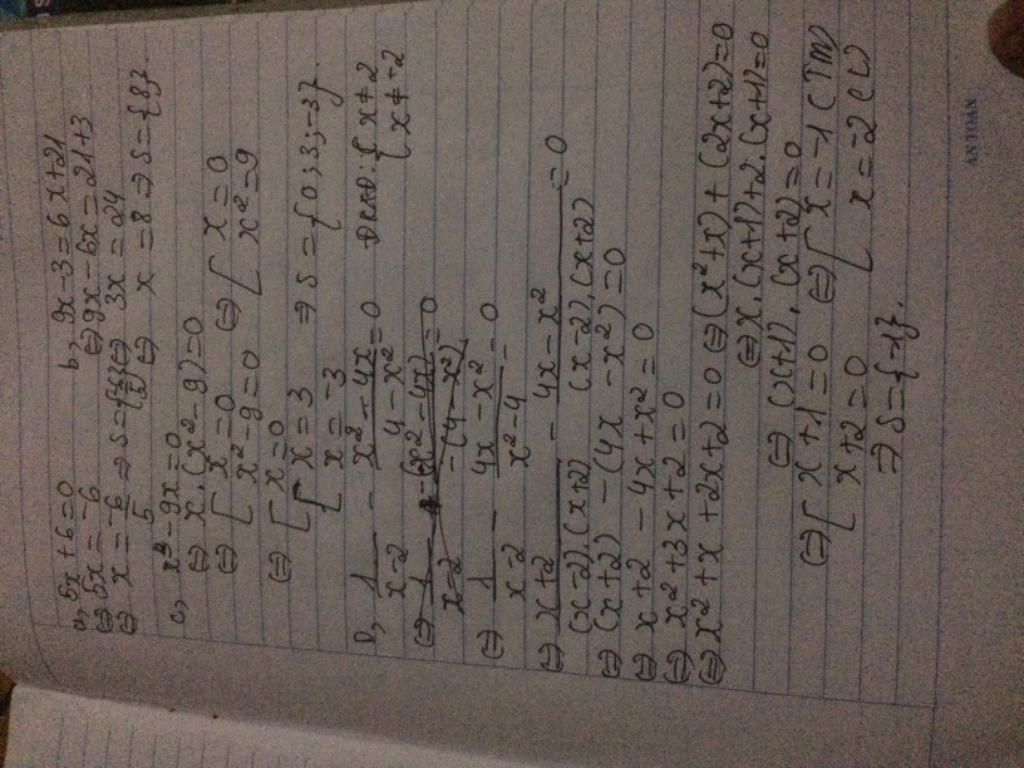 a, 5x + 6 = 0
⇔ 5x = -6
⇔ x = -6/5 ⇒ S = {-6/5}
b, 9x - 3 = 6x + 21
⇔ 9x - 6x = 21 + 3
⇔ 3x = 24
⇔ x = 8 ⇒ S = {8}.
c, x³ - 9x = 0
⇔ x.(x² - 9) = 0
⇔ [ x = 0 ⇔ [ x = 0
x² - 9 = 0 x² = 9
⇔ [ x = 0
[ x = 3 ⇒ S = {0; 3; -3}.
x = -3
1/(x-2) - (x² - 4x)/(4 - x²) = 0 ĐKXĐ: { x ≠ 2
{ x ≠ -2
⇔ 1/(x-2) - (4x - x²)/(x² - 4) = 0
⇔ (x+2)/((x-2).(x+2)) - (4x - x²)/((x-2).(x+2)) = 0
⇔ (x+2) - (4x - x²) = 0
⇔ x + 2 - 4x + x² = 0
⇔ x² + 3x + 2 = 0
⇔ x² + x + 2x + 2 = 0 ⇔ (x² + x) + (2x + 2) = 0
⇔ x.(x+1) + 2.(x+1) = 0
⇔ (x+1).(x+2) = 0
⇔ [ x + 1 = 0 ⇔ [ x = -1 (TM)
x + 2 = 0 x = -2 (L)
⇒ S = {-1}.
AN TOAN